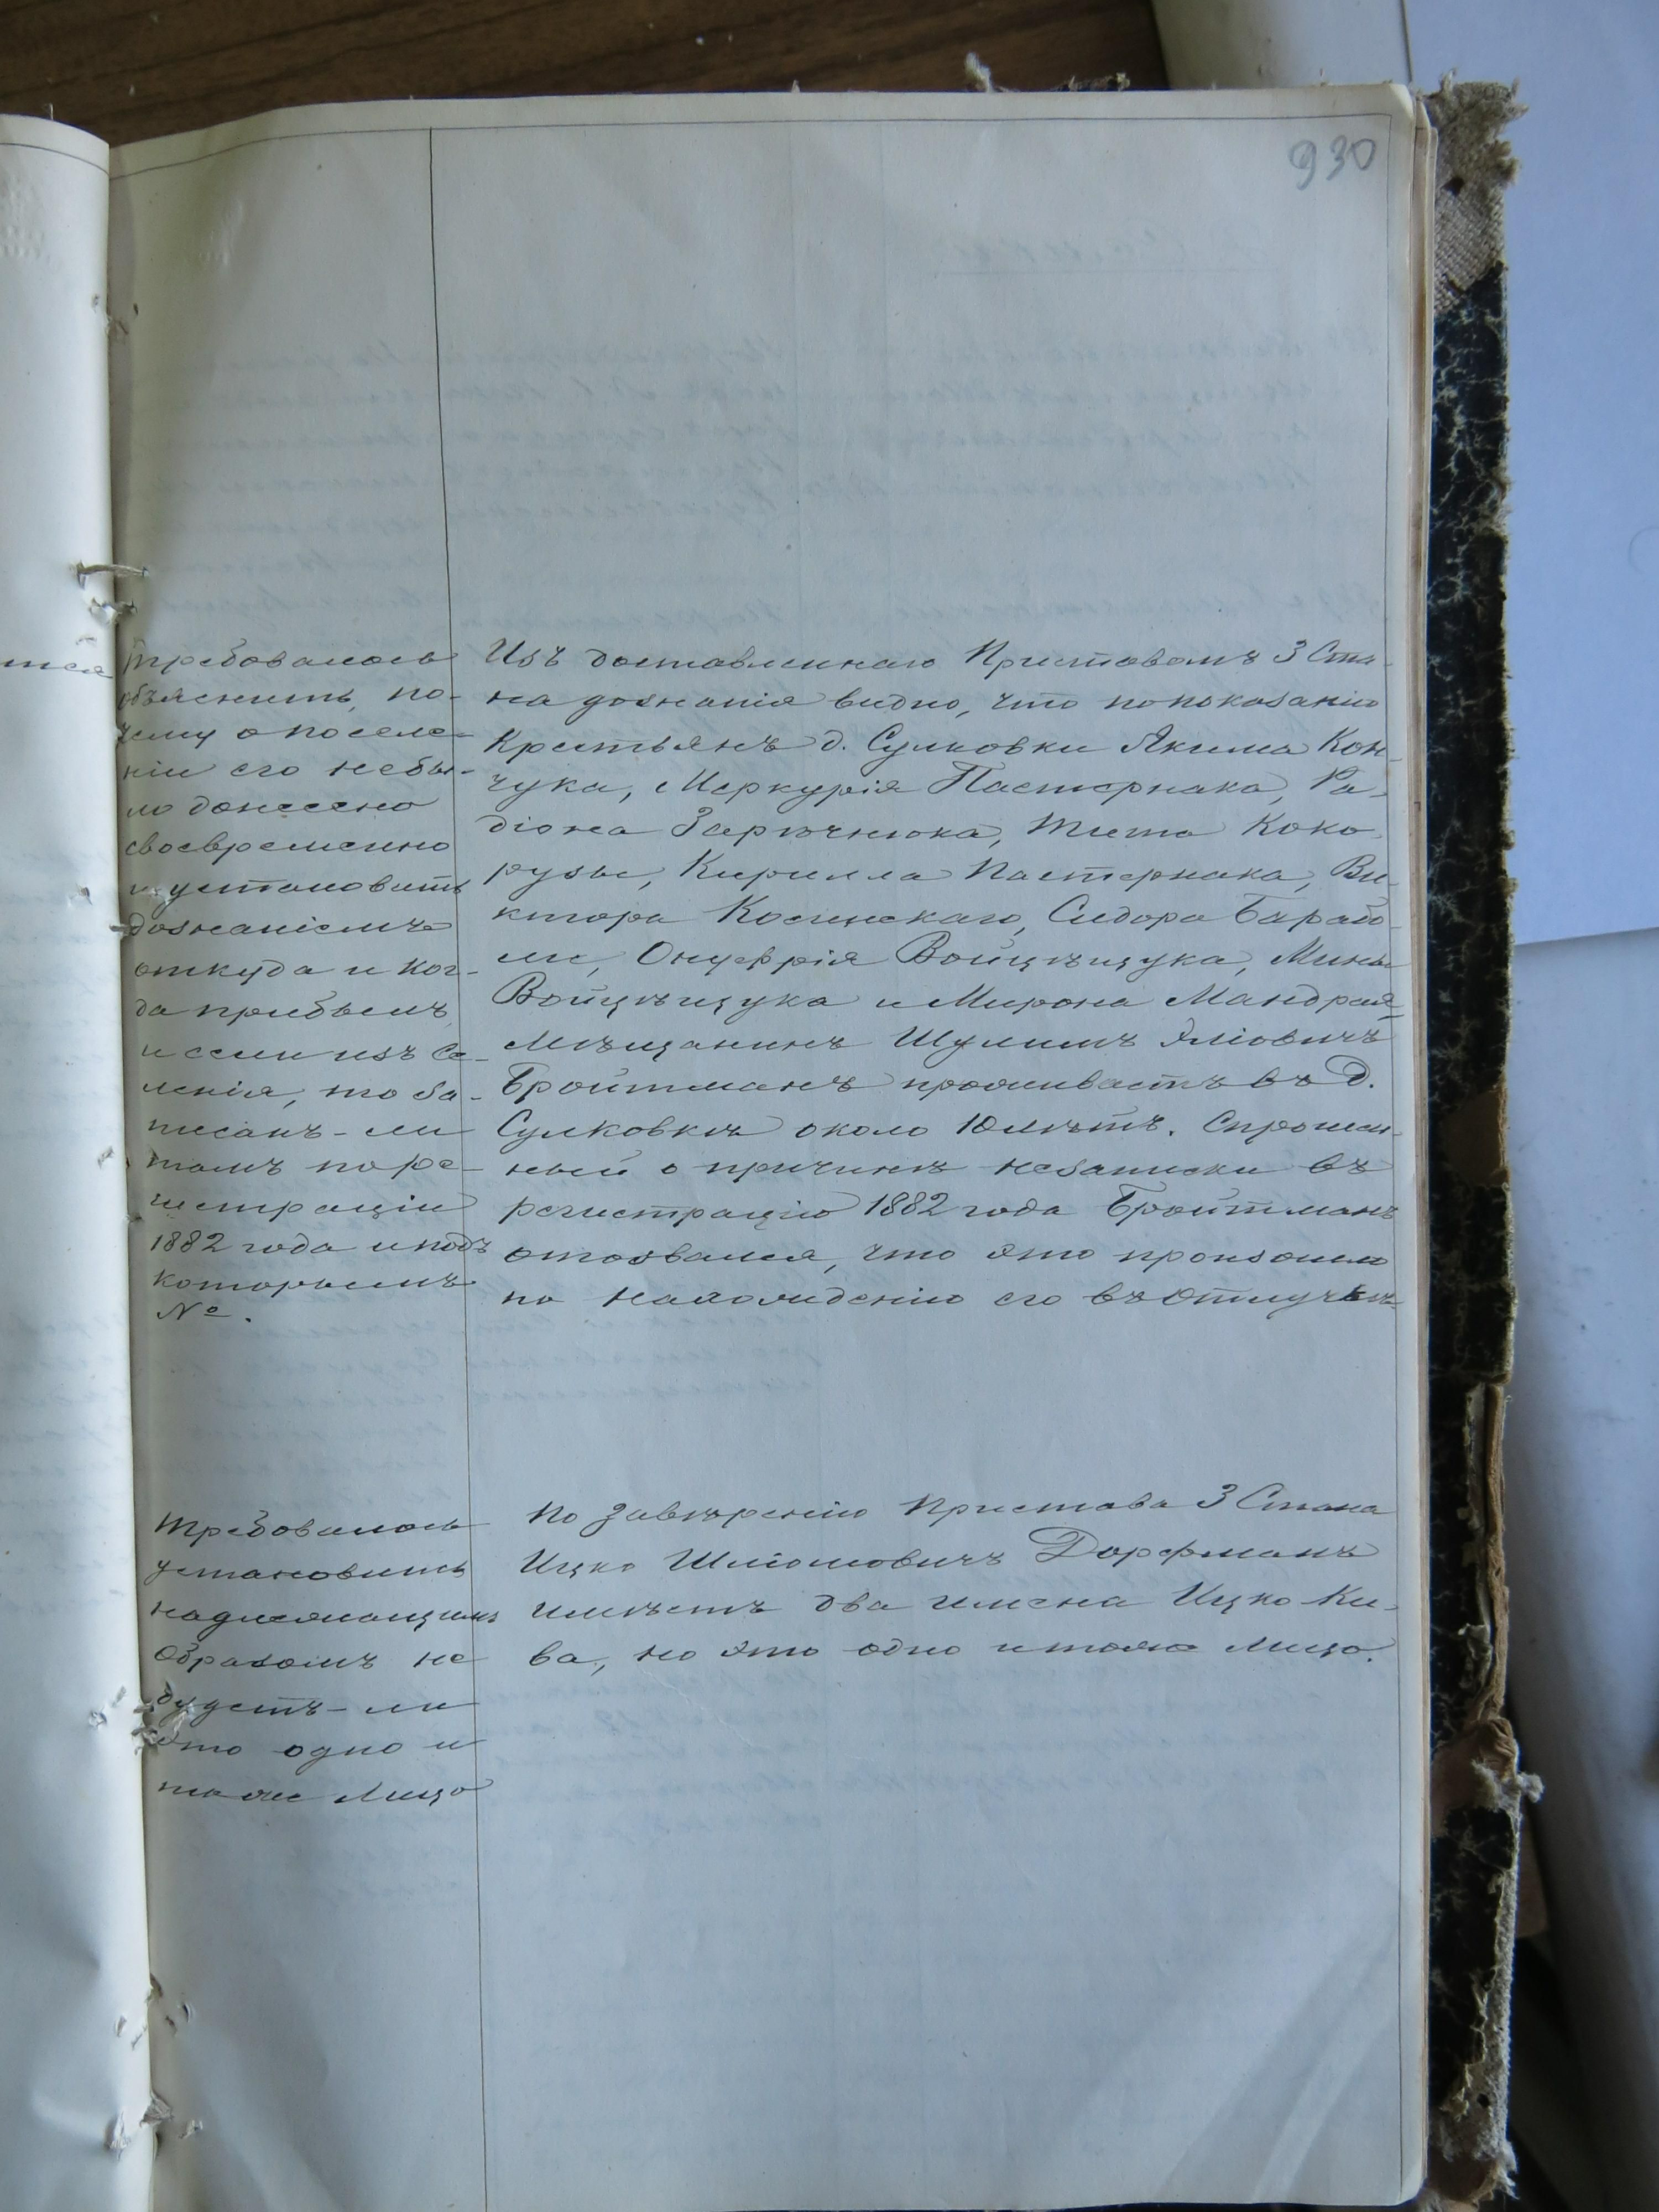 930
Требовалось
объяснить, по-
чему о поселе-
ніи его небы-
ло донесено
своевременно
и установить
дознаніемъ
откуда и ког-
да прибылъ
и если изъ се-
ленія, то за-
писанъ-ли
тамъ по ре-
гистраціи
1882 года и подъ
которымъ
№.
Изъ доставленнаго Приставомъ 3 Ста-
на дознанія видно, что попоказанію
Крестьянъ д. Сулковки Якима Кон-
чука, Меркурія Пастернака, Ра-
діона Заричнюка, Тита Коко
рузы, Кирилла Пастернака, Ви-
ктора Косинскаго, Сидора Барабо-
ли, Онуфрія Войцѣщука, Мины
Войцѣщука и Мирона Мандрыя
Мѣщанинъ Шулимъ Эліовичъ
Бройтманъ проживаетъ въ д.
Сулковкѣ около 10 лѣтъ. Спрошен-
ный о причинѣ незаписки въ
регистрацію 1882 года Бройтманъ
отозвался, что это произошло
по нахожденію его въ отлучкѣ
Требовалось
установить
надлежащимъ
образомъ не
будетъ-ли
это одно и
тоже лицо
По завѣренію Пристава 3 Стана
Ицко Шліомовичъ Дорфманъ
имѣетъ два имена Ицко Ки-
ва, но это одно итоже лицо.